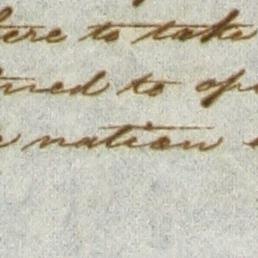 here to take
ned to op
nation